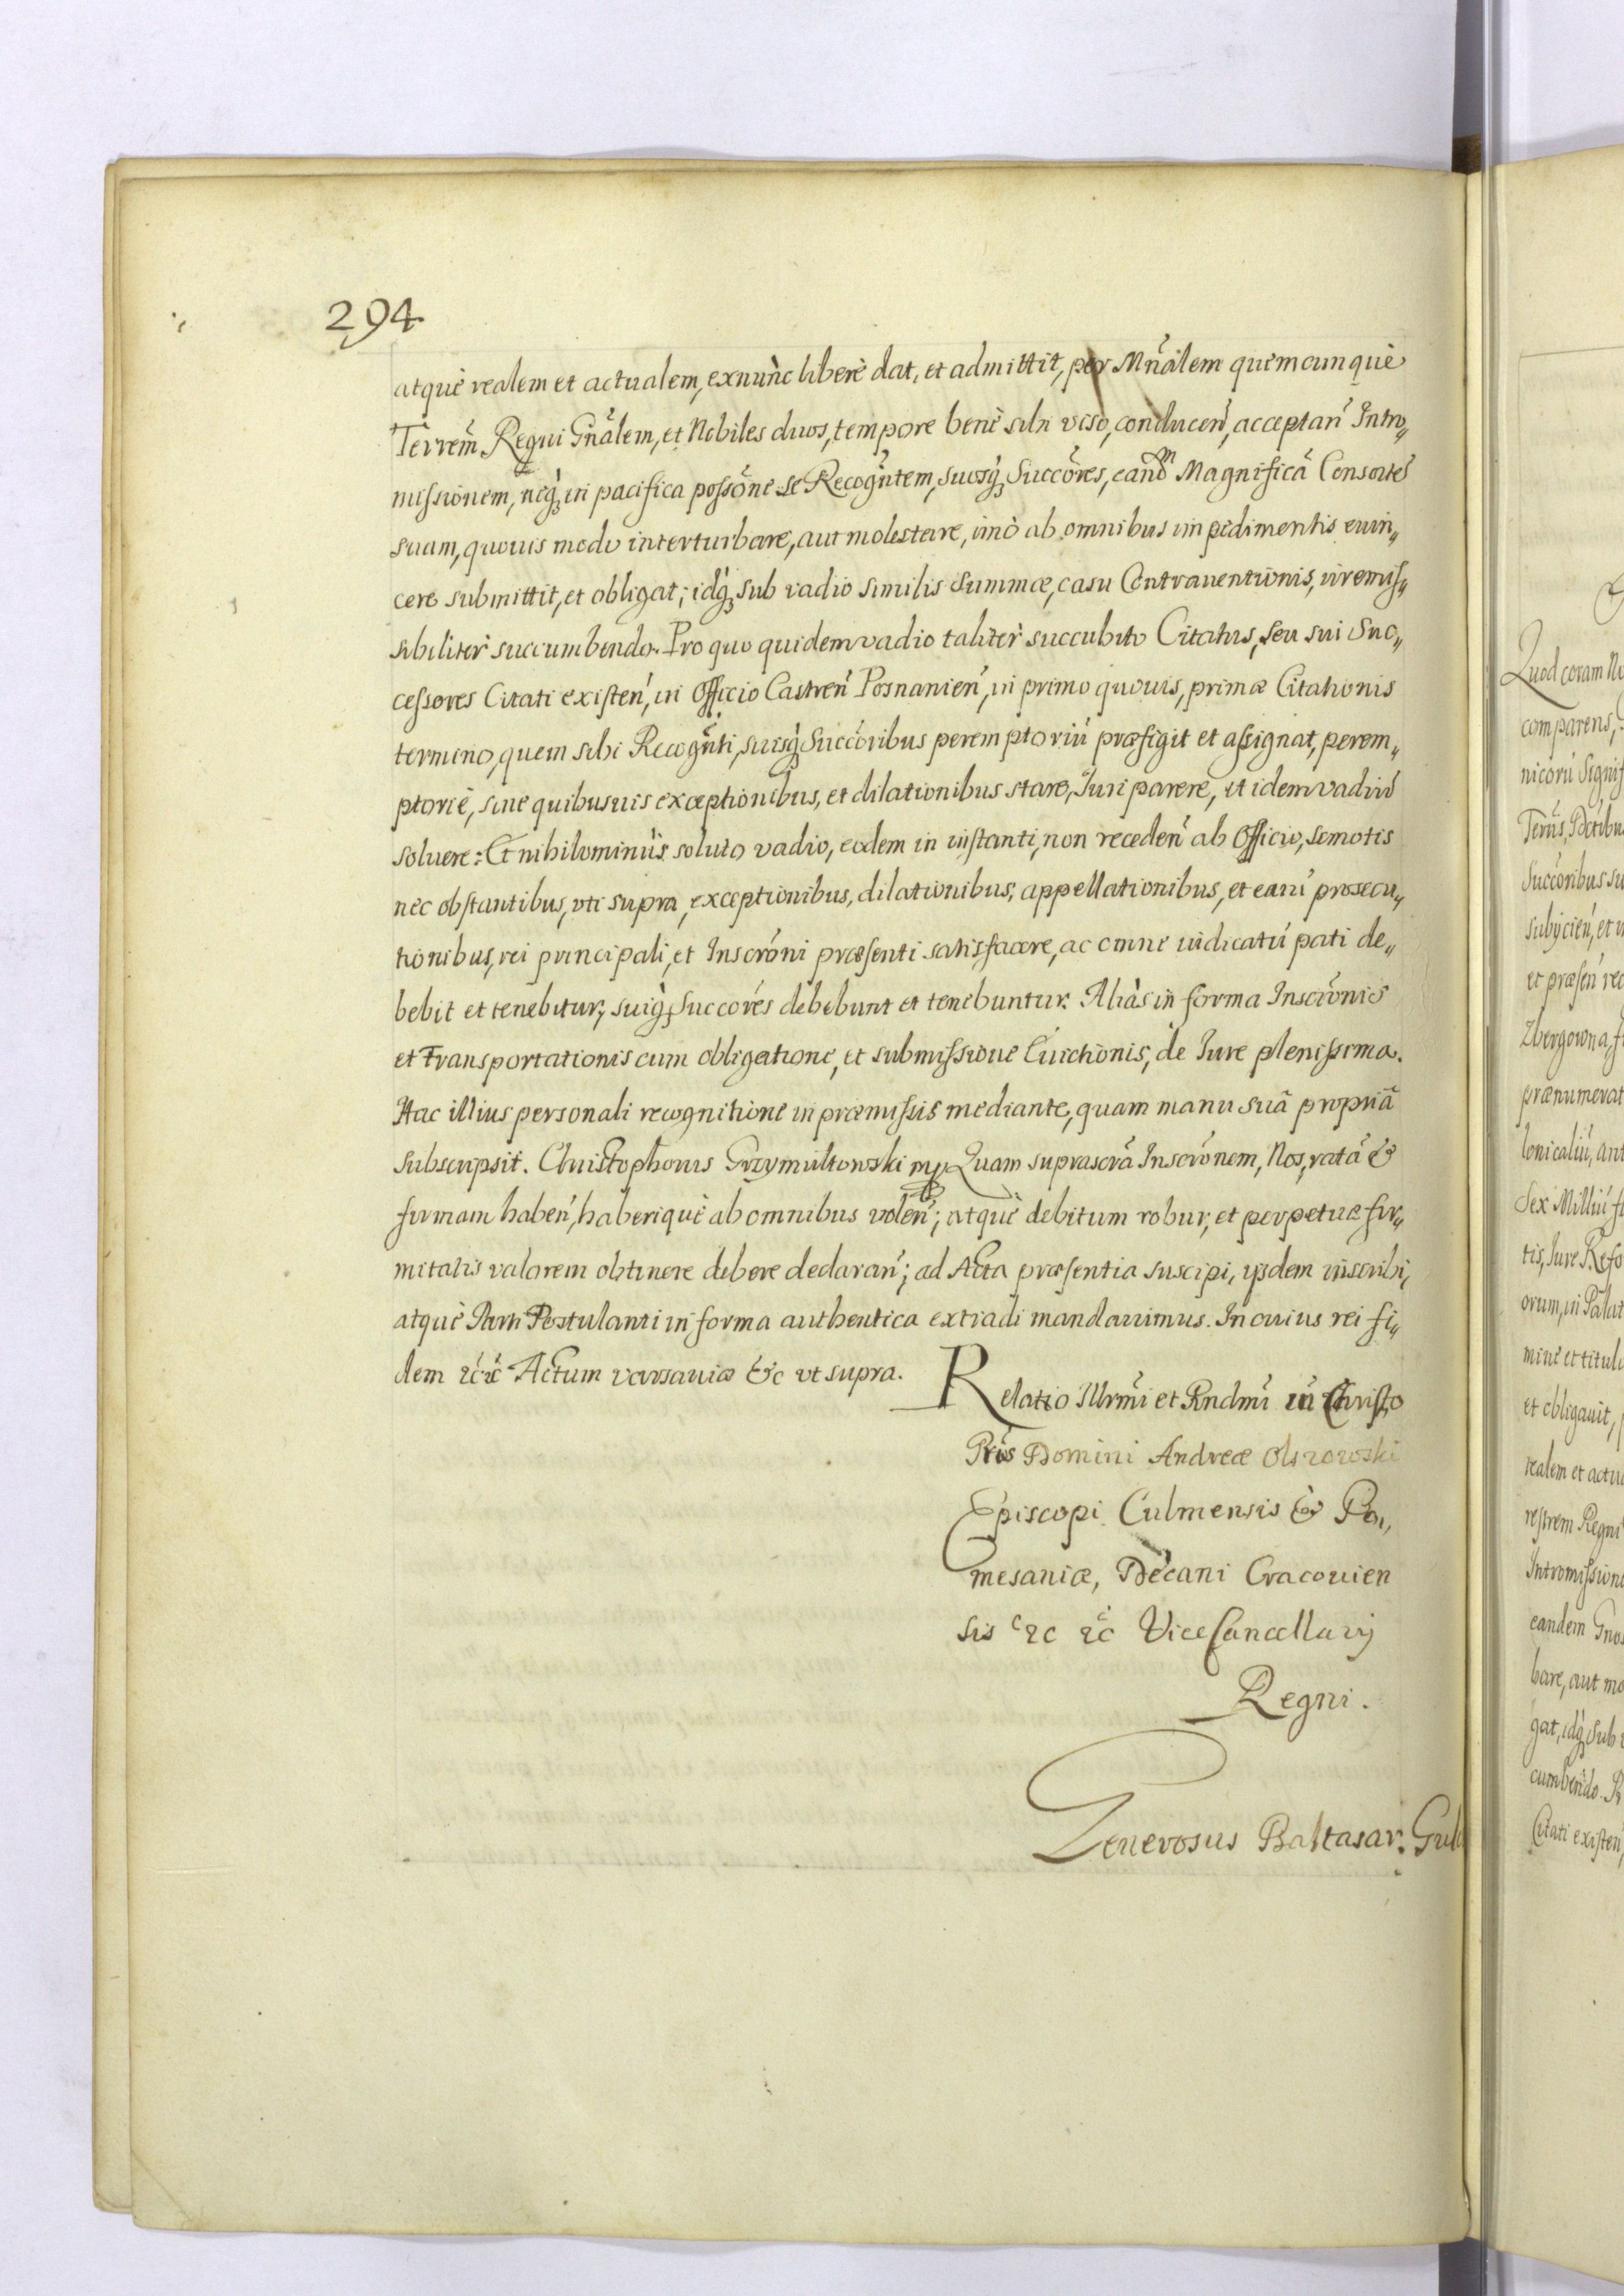 294
atquè realem et actualem, exnunc liberè dat, et admittit, per Mñalem quemcunquè
Terrem̃ Regni Gñalem, et Nobiles duos, tempore benè sibi viso, conducen̄, acceptan̄ Intro„
missionem, neq́ꝫ in pacifica possõne se Recogñtem, suosq́ꝫ Succõres, eandm̃ Magnificã Consortē
suam, quouis modo interturbare, aut molestare, imò ab omnibus impedimentis euin„
cere submittit, et obligat; idq́ꝫ sub vadio similis Summæ, casu Contrauentionis, irremis„
sibiliter succumbendo. Pro quo quidem vadio taliter succubito Citatus, seu sui Suc„
cessores Citati existen̄, in Officio Castren̄ Posnanien̄, in primo quouis, primæ Citationis
termino, quem sibi Recogñti, suisq́ꝫ Succõribus peremptoriū præfigit et assignat, perem„
ptoriè, sine quibusuis exceptionibus, et dilationibus stare, Juri parere, et idem vadiū
soluere: Et nihilominùs soluto vadio, eodem in instanti, non receden̄ ab Officio, semotis
nec obstantibus, vti supra, exceptionibus, dilationibus, appellationibus, et earū prosecu„
tionibus, rei principali, et Inscrõni præsenti satisfacere, ac omne iudicatū pati de„
bebit et tenebitur, suiq́ꝫ Succõres debebunt et tenebuntur. Aliàs in forma Inscrõnis
et Transportationis cum obligatione, et submissione Euictionis, de Jure plenissima.
Hac illius personali recognitione in præmissis mediante, quam manu suâ propriâ
subscripsit. Christophorus Grzymultowski mp. Quam suprascrã Inscrõnem, Nos, ratã &
firmam haben̄, haberiquè ab omnibus volen̄; atquè debitum robur, et perpetuæ fir„
mitatis valorem obtinere debere declaran̄; ad Acta præsentia suscipi, ijsdem inscribi,
atquè Parti Postulanti in forma authentica extradi mandauimus. In cuius rei fi„
dem ꝛc̃ ꝛc̃ Actum varsauiæ &c vt supra.
Relatio Illrm̃i et Rndm̃i in Christo
Pris̃ Domini Andreæ Olszowski
Episcopi Culmensis & Po„
mesaniæ, Decani Cracouien
sis ꝛc ꝛc̃ ViceCancellarij
Regni.
Generosus Baltasar Guld